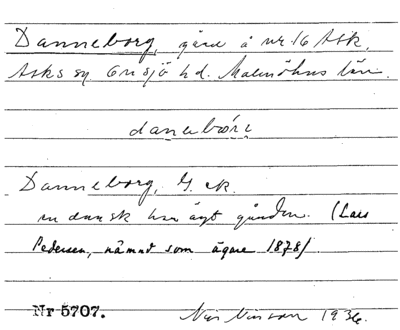 Danneborg, gård å nr 16 Ask,
Asks sn Onsjö hd. Malmöhus län.
Danneborg, G. ek.
en dansk har ägt gården. (Lars
Pedersen, nämnd som ägare 1878)
Nr 5707.
1936.